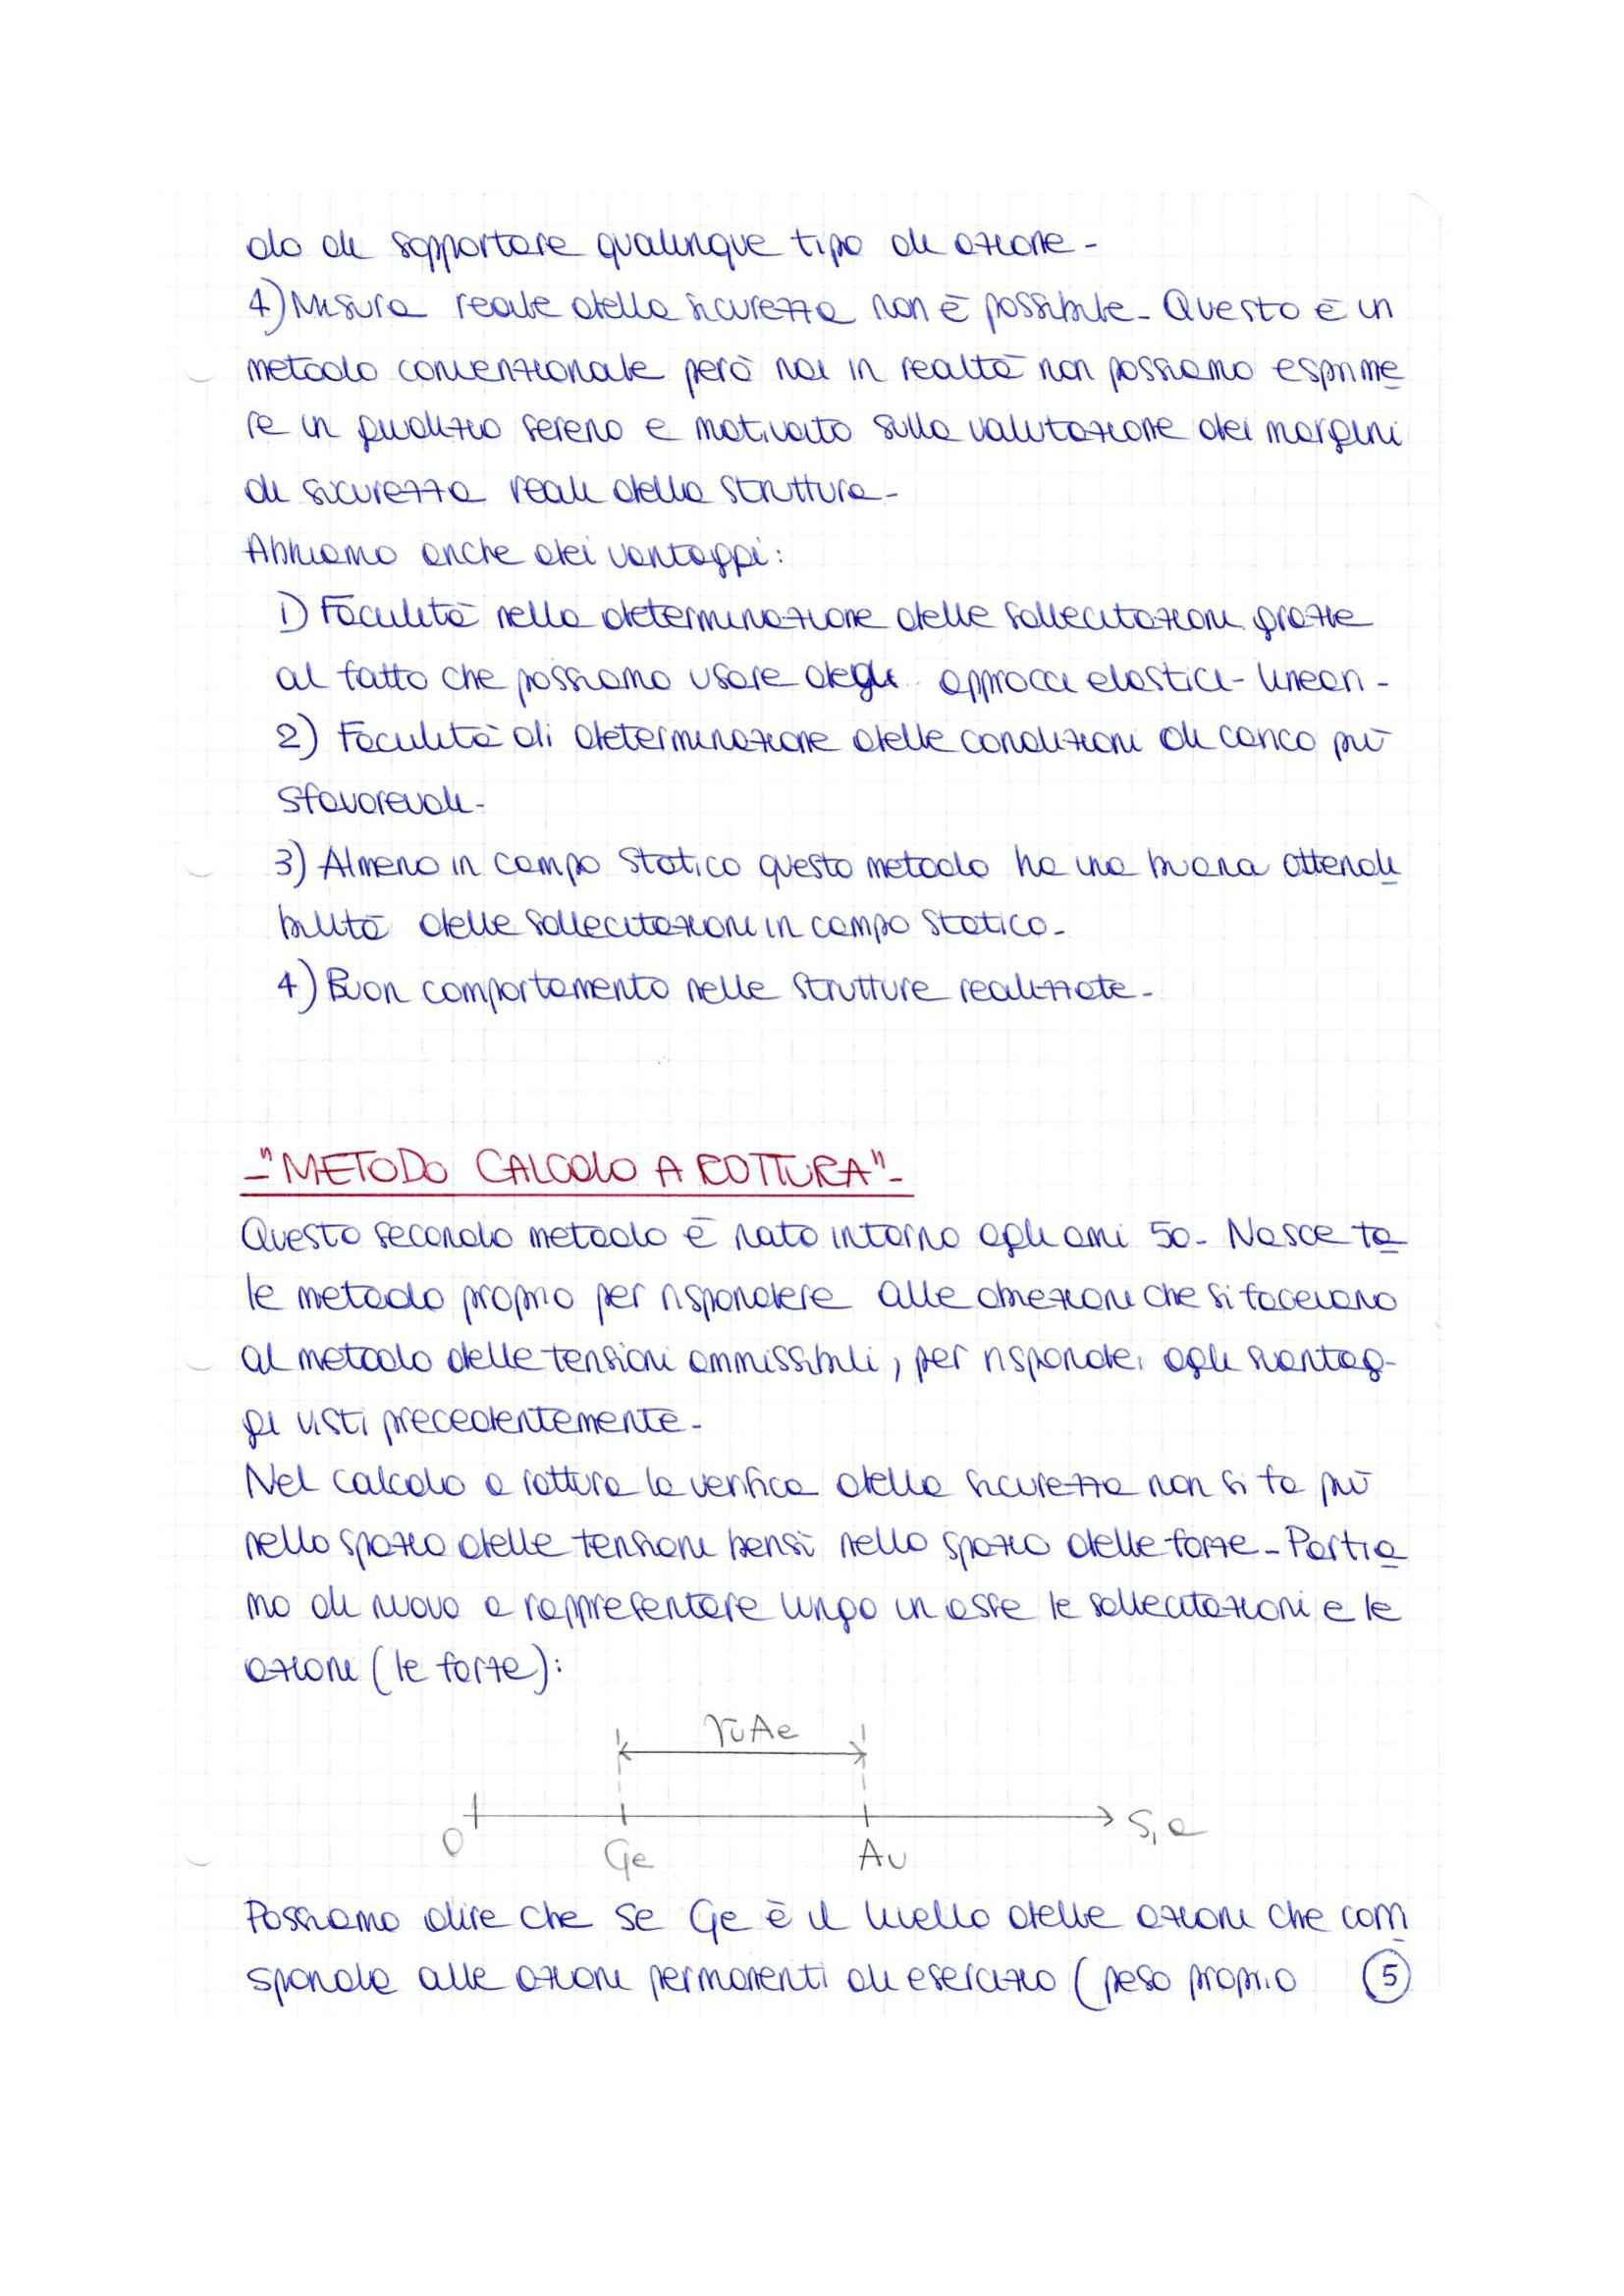 do di sopportare qualunque tipo di azione-
4) Misura reale della sicurezza non è possibile- Questo è un
metodo convenzionale però noi in realtà non possiamo esprime
re un giudizio sereno e motivato sulla valutazione dei margini
di sicurezza reali della struttura-
Abbiamo anche dei vantaggi:
1) Facilità nella determinazione delle sollecitazioni grazie
al fatto che possiamo usare degli approcci elastici-lineari-
2) Facilità di determinazione delle condizioni di carico più
sfavorevoli-
3) Almeno in campo statico questo metodo ha una buona attendi
bilità delle sollecitazioni in campo statico-
4) Buon comportamento nelle strutture realizzate-
-"METODO CALCOLO A ROTTURA"-
Questo secondo metodo è nato intorno agli anni 50- Nasce ta
le metodo proprio per rispondere alle obiezioni che si facevano
al metodo delle tensioni ammissibili, per risponder agli svantag-
gi visti precedentemente-
Nel calcolo a rottura la verifica della sicurezza non si fa più
nello spazio delle tensioni bensì nello spazio delle forze- Partia
mo di nuovo a rappresentare lungo un asse le sollecitazioni e le
azioni (le forze):
γu Ae
0 Ge Au S, a
Possiamo dire che se Ge è il livello delle azioni che corri
sponde alle azioni permanenti di esercizio (peso proprio 5